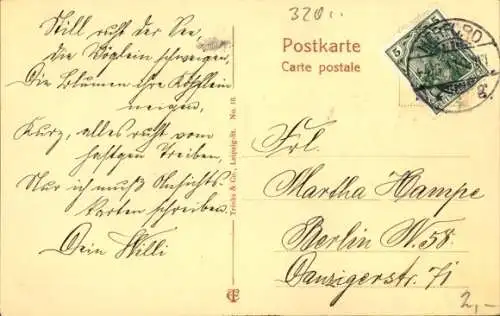 Still ruht der See,
die Vöglein schweigen,
Die Blumen ihre Köpflein
neigen,
Kurz, alles ruht vom
hastgen Treiben,
Nur ich muß Ansichts-
karten schreiben.
Dein Willi
Trinks & Co., Leipzig No. 10.
320.
Postkarte
Carte postale
5
5
Frl.
Martha Hampe
Berlin N. 58.
Danzigerstr. 71
2,-